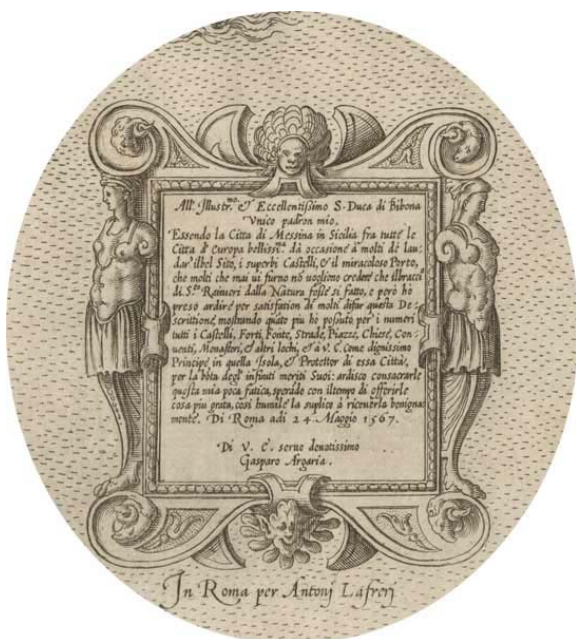 All'. Illustr.mo & Eccellentissimo S. Duca di Bibona
Vnico padron mio.
Essendo la Citta di Messina in Sicilia fra tutte le
Citta d' Europa bellissi.ma dà occasione à molti di lau:
dar' ilbel Sito, i superbi Castelli, & il miracoloso Porto,
che molti che mai ui furno nō uogliono credere che ilbracci
di S.to Raineri dalla Natura fosse si fatto, e però hò
preso ardire per satisfation di molti difar questa De:
scrittione, mostrando quāto piu hò possuto per i numeri
tutti i Castelli, Forti, Fonte, Strade, Piazze, Chiese, Con:
uenti, Monasteri, & altri lochi, & à V. E. Come dignissimo
Principe in quella Isola, & Protettor di essa Città,
per la bōta degl' infiniti meriti Suoi: ardisco consacrarle
questa mia poca fatica, sperādo con iltempo di offerirle
cosa piu grata, così humile la suplico à riceuerla benigna:
mente. Di Roma adi 24 Maggio 1567.
Di V. E. seruo deuotissimo
Gasparo Argaria.
In Roma per Antonj Lafrerj